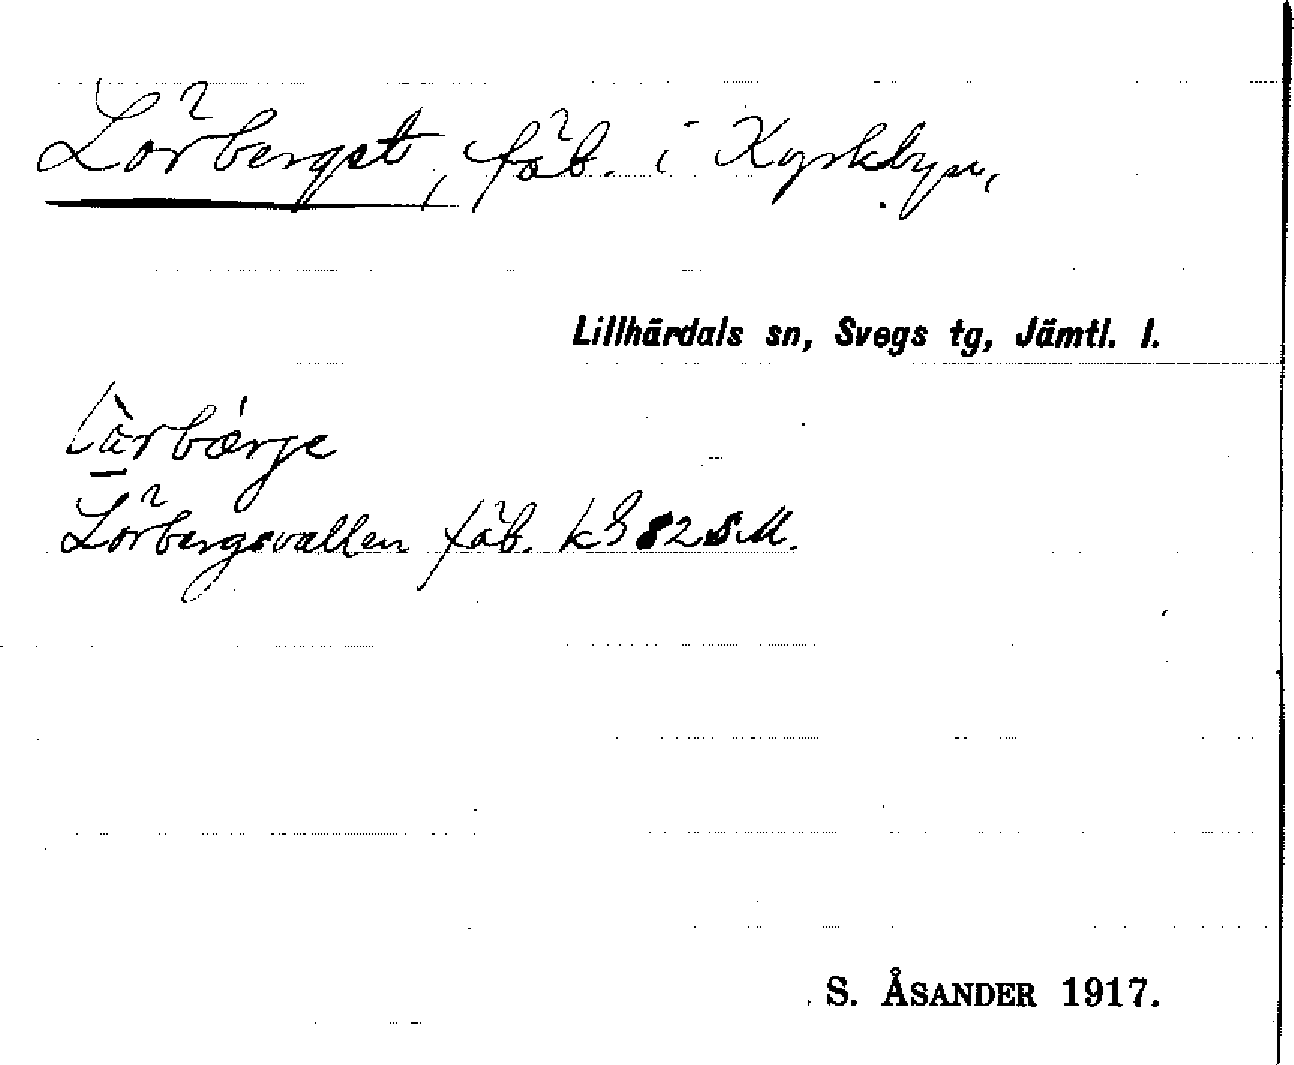 Lörberget, fäb. i Kyrkbyn,
Lillhärdals sn, Svegs tg, Jämtl. l.
Lörbergsvallen fäb. k
S. ÅSANDER 1917.